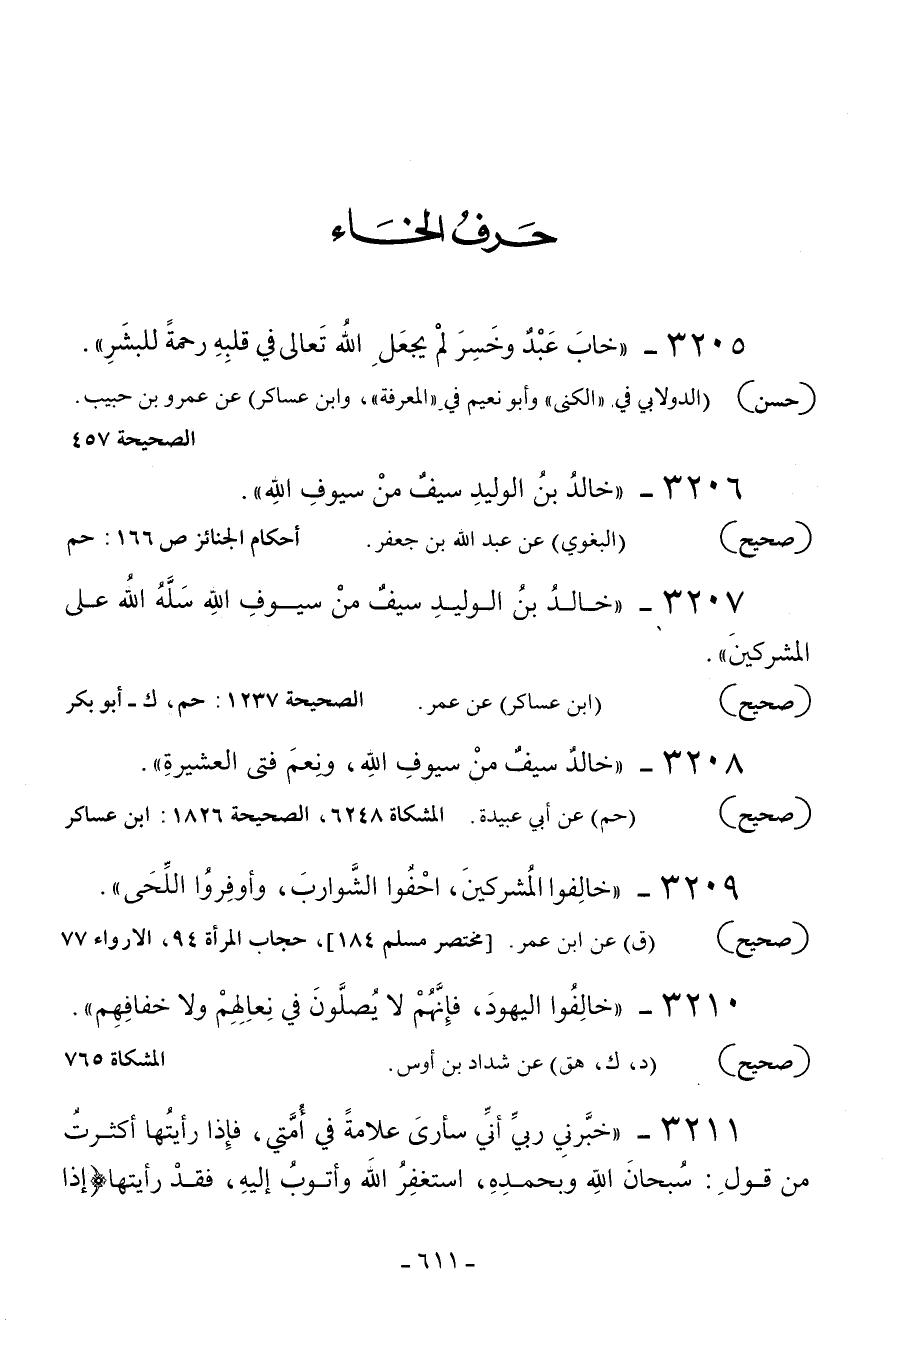 حَرفُ الخَاء
٣٢٠٥ - «خابَ عَبْدٌ وخَسِرَ لمْ يجعَلِ اللهُ تَعالى في قلبِهِ رحمةً للبشَرِ».
(حسن) (الدولابي في «الكنى» وأبو نعيم في «المعرفة»، وابن عساكر) عن عمرو بن حبيب.
الصحيحة ٤٥٧
٣٢٠٦ - «خالدُ بنُ الوليدِ سيفٌ منْ سيوفِ اللهِ».
(صحيح) (البغوي) عن عبد الله بن جعفر. أحكام الجنائز ص ١٦٦ : حم
٣٢٠٧ - «خـالـدُ بنُ الـوليـدِ سيفٌ منْ سيـوفِ اللهِ سَلَّهُ اللهُ عـلى
المشركينَ».
(صحيح) (ابن عساكر) عن عمر. الصحيحة ١٢٣٧ : حم، ك - أبو بكر
٣٢٠٨ - «خالدٌ سيفٌ منْ سيوفِ اللهِ، ونِعمَ فتى العشيرةِ».
(صحيح) (حم) عن أبي عبيدة. المشكاة ٦٢٤٨، الصحيحة ١٨٢٦ : ابن عساكر
٣٢٠٩ - «خالِفوا المُشركينَ، احْفُوا الشَّواربَ، وأوفِروُا اللِّحَى».
(صحيح) (ق) عن ابن عمر. [مختصر مسلم ١٨٤]، حجاب المرأة ٩٤، الارواء ٧٧
٣٢١٠ - «خالِفُوا اليهودَ، فإنَّهُمْ لا يُصلَّونَ في نِعالِهِمْ ولا خفافِهِم».
(صحيح) (د، ك، هق) عن شداد بن أوس. المشكاة ٧٦٥
٣٢١١ - «خبَّرني ربيِّ أنيِّ سأرىَ علامةً في أُمَّتي، فإذا رأيتُها أكثـرتُ
من قـولِ : سُبحانَ اللهِ وبحمـدِهِ، استغفِرُ اللهَ وأتـوبُ إليهِ، فقـدْ رأيتها﴿إذا
- ٦١١ -